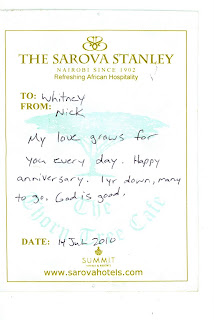 THE SAROVA STANLEY
NAIROBI SINCE 1902
Refreshing African Hospitality
TO: Whitney
FROM: Nick
My love grows for
you every day. Happy
anniversary. 1yr down, many
to go. God is good.
The
Thorn Tree Cafe
DATE: 14 Jul 2010
SUMMIT
www.sarovahotels.com